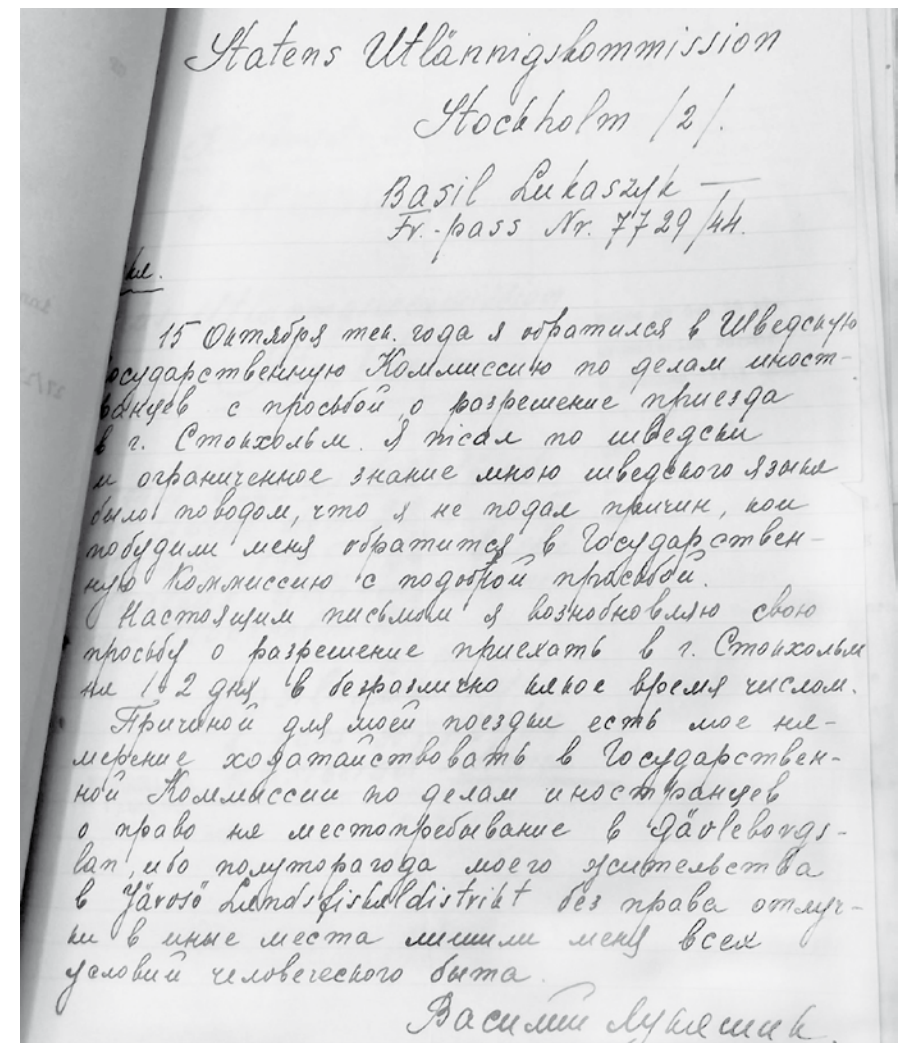 Statens Utlännigskommission
Stockholm /2/.
Basil Lukaszyk —
Fr.-pass Nr. 7729/44.
15 Октября тек. года я обратился в Шведскую
осударственную Коммиссию по делам иност-
ранцев с просьбой о разрешение приезда
в г. Стокхольм. Я пісал по шведски
и ограниченное знание мною шведского языка
было поводом, что я не подал причин, кои
побудили меня обратится в Государствен-
ную Коммиссию с подобной просьбой.
Настоящим письмом я вознобновляю свою
просьбу о разрешение приехать в г. Стокхольм
на 1-2 дня в безразлично какое время числом.
Причиной для моей поездки есть мое на-
мерение ходатайствовать в Государствен-
ной Коммиссии по делам иностранцев
о право на местопребывание в Gävleborgs-
län, ибо полуторагода моего жительства
в Järvsö Landsfiskaldistrikt без права отлуч-
ки в иные места лишили меня всех
условий человеческого быта.
Василий Лукашик.